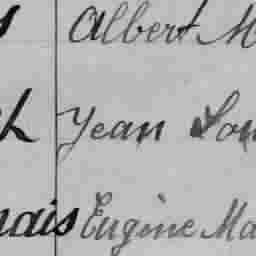 Albert M
Jean Lou
nais Eugène Ma